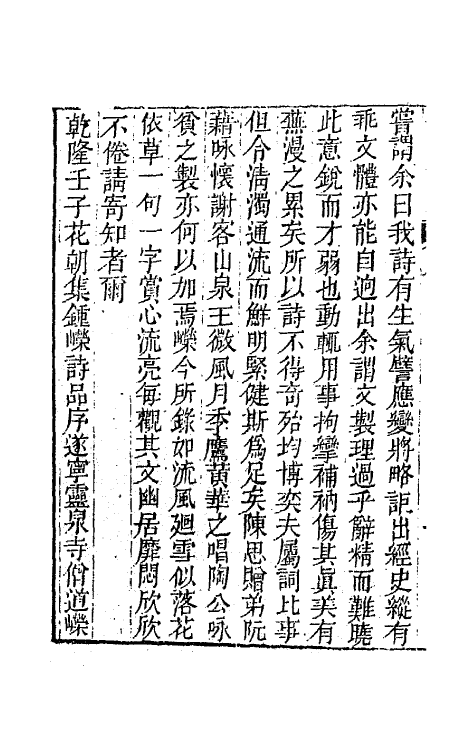 嘗謂余曰我詩有生氣譬應變將略詎出經史縱有
乖文體亦能自迥出余謂文製理過乎辭精而難曉
此意銳而才弱也動輒用事拘攣補衲傷其眞美有
蕪漫之累矣所以詩不得竒殆均博奕夫屬詞比事
但令淸濁通流而鮮明緊健斯爲足矣陳思贈弟阮
藉咏懷謝客山泉王微風月季鷹黃華之唱陶公咏
貧之製亦何以加焉嶸今所錄如流風廻雪似落花
依草一句一字賞心流亮每觀其文幽居靡悶欣欣
不倦請寄知者爾
乾隆壬子花朝集鍾嶸詩品序遂寧靈泉寺僧道嶸